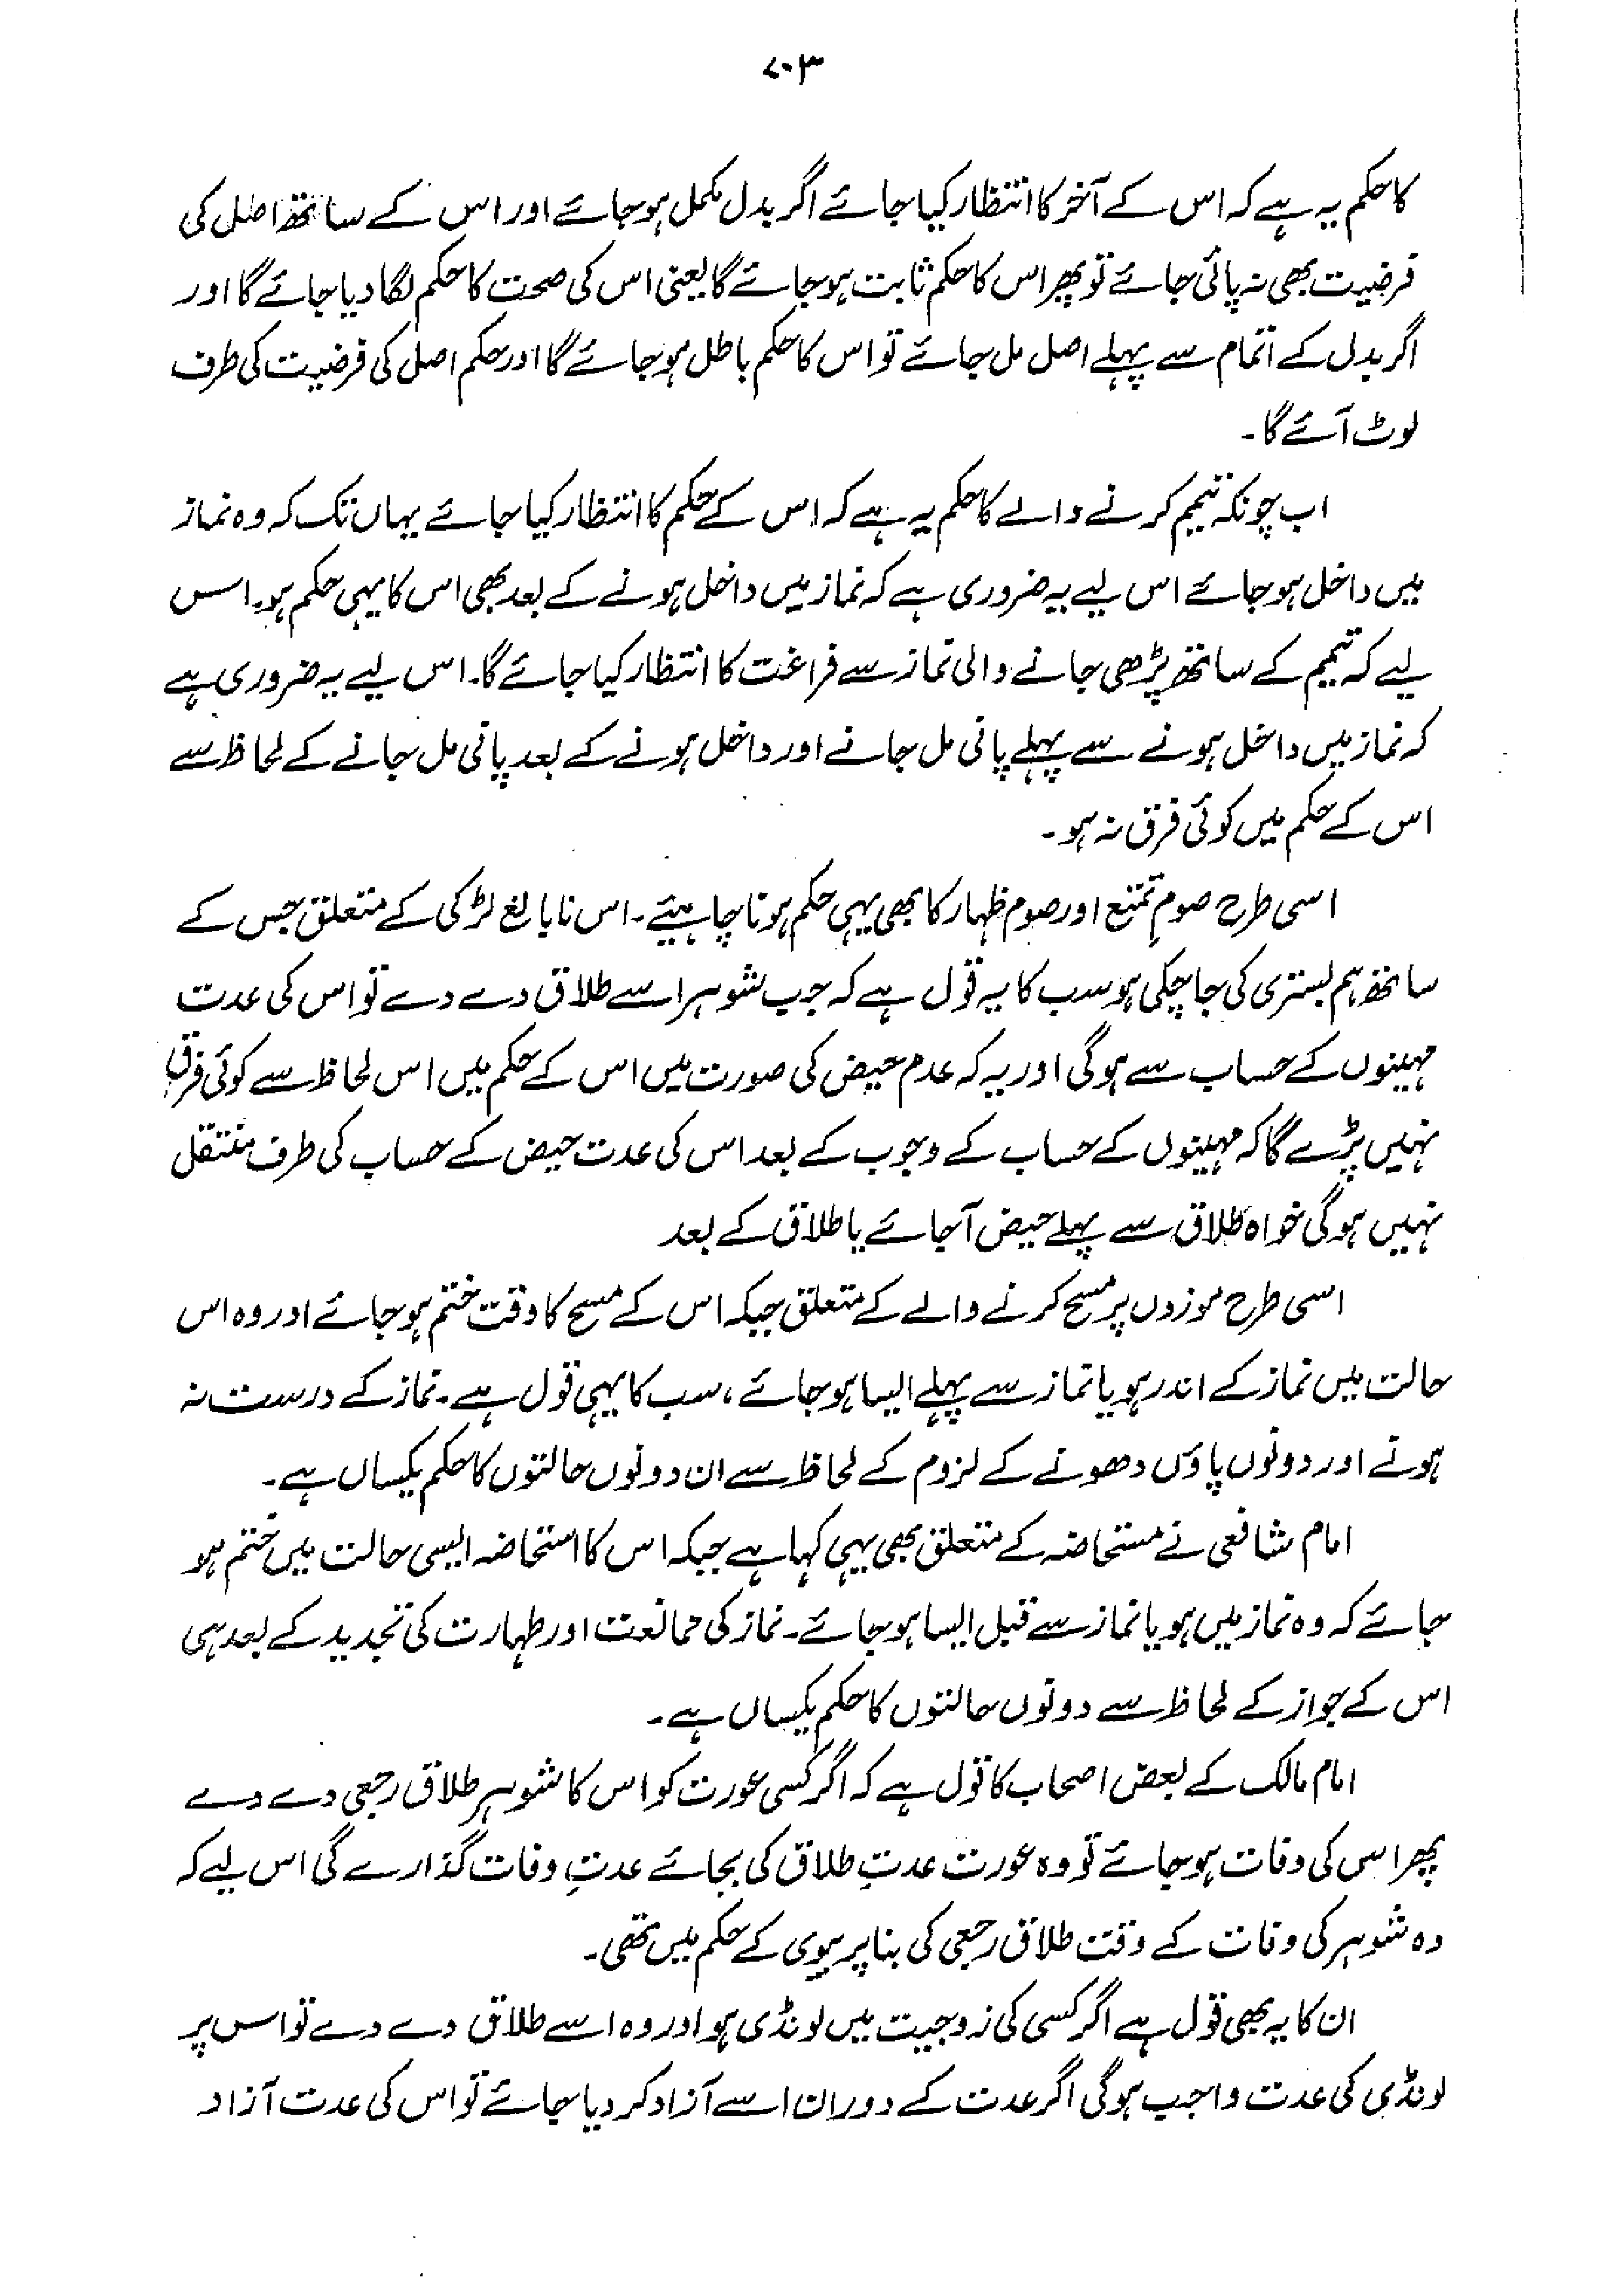 ۷۰۳
کا حکم یہ ہے کہ اس کے آخر کا انتظار کیا جائے اگر بدل مکمل ہو جائے اور اس کے ساتھ اصل کی
فرضیت بھی نہ پائی جائے تو پھر اس کا حکم ثابت ہو جائے گا یعنی اس کی صحت کا حکم لگا دیا جائے گا اور
اگر بدل کے اتمام سے پہلے اصل مل جائے تو اس کا حکم باطل ہو جائے گا اور حکم اصل کی فرضیت کی طرف
لوٹ آئے گا۔
اب چونکہ تیمم کرنے والے کا حکم یہ ہے کہ اس کے حکم کا انتظار کیا جائے یہاں تک کہ وہ نماز
میں داخل ہو جائے اس لیے یہ ضروری ہے کہ نماز میں داخل ہونے کے بعد بھی اس کا یہی حکم ہو۔ اس
لیے کہ تیمم کے ساتھ پڑھی جانے والی نماز سے فراغت کا انتظار کیا جائے گا۔ اس لیے یہ ضروری ہے
کہ نماز میں داخل ہونے سے پہلے پانی مل جانے اور داخل ہونے کے بعد پانی مل جانے کے لحاظ سے
اس کے حکم میں کوئی فرق نہ ہو۔
اسی طرح صومِ تمتع اور صوم ظہار کا بھی یہی حکم ہونا چاہیئے۔ اس نابالغ لڑکی کے متعلق جس کے
ساتھ ہم بستری کی جا چکی ہو سب کا یہ قول ہے کہ جب شوہر اسے طلاق دے دے تو اس کی عدت
مہینوں کے حساب سے ہوگی اور یہ کہ عدم حیض کی صورت میں اس کے حکم میں اس لحاظ سے کوئی فرق
نہیں پڑے گا کہ مہینوں کے حساب کے وجوب کے بعد اس کی عدت حیض کے حساب کی طرف منتقل
نہیں ہوگی خواہ طلاق سے پہلے حیض آجائے یا طلاق کے بعد
اسی طرح موزوں پر مسح کرنے والے کے متعلق جبکہ اس کے مسح کا وقت ختم ہو جائے اور وہ اس
حالت میں نماز کے اندر ہو یا نماز سے پہلے ایسا ہو جائے، سب کا یہی قول ہے۔ نماز کے درست نہ
ہونے اور دونوں پاؤں دھونے کے لزوم کے لحاظ سے ان دونوں حالتوں کا حکم یکساں ہے۔
امام شافعی نے مستحاضہ کے متعلق بھی یہی کہا ہے جبکہ اس کا استحاضہ ایسی حالت میں ختم ہو
جائے کہ وہ نماز میں ہو یا نماز سے قبل ایسا ہو جائے۔ نماز کی ممانعت اور طہارت کی تجدید کے بعد ہی
اس کے جواز کے لحاظ سے دونوں حالتوں کا حکم یکساں ہے۔
امام مالک کے بعض اصحاب کا قول ہے کہ اگر کسی عورت کو اس کا شوہر طلاق رجعی دے دے
پھر اس کی وفات ہو جائے تو وہ عورت عدتِ طلاق کی بجائے عدتِ وفات گذارے گی اس لیے کہ
وہ شوہر کی وفات کے وقت طلاق رجعی کی بنا پر بیوی کے حکم میں تھی۔
ان کا یہ بھی قول ہے اگر کسی کی زوجیت میں لونڈی ہو اور وہ اسے طلاق دے دے تو اس پر
لونڈی کی عدت واجب ہوگی اگر عدت کے دوران اسے آزاد کر دیا جائے تو اس کی عدت آزاد